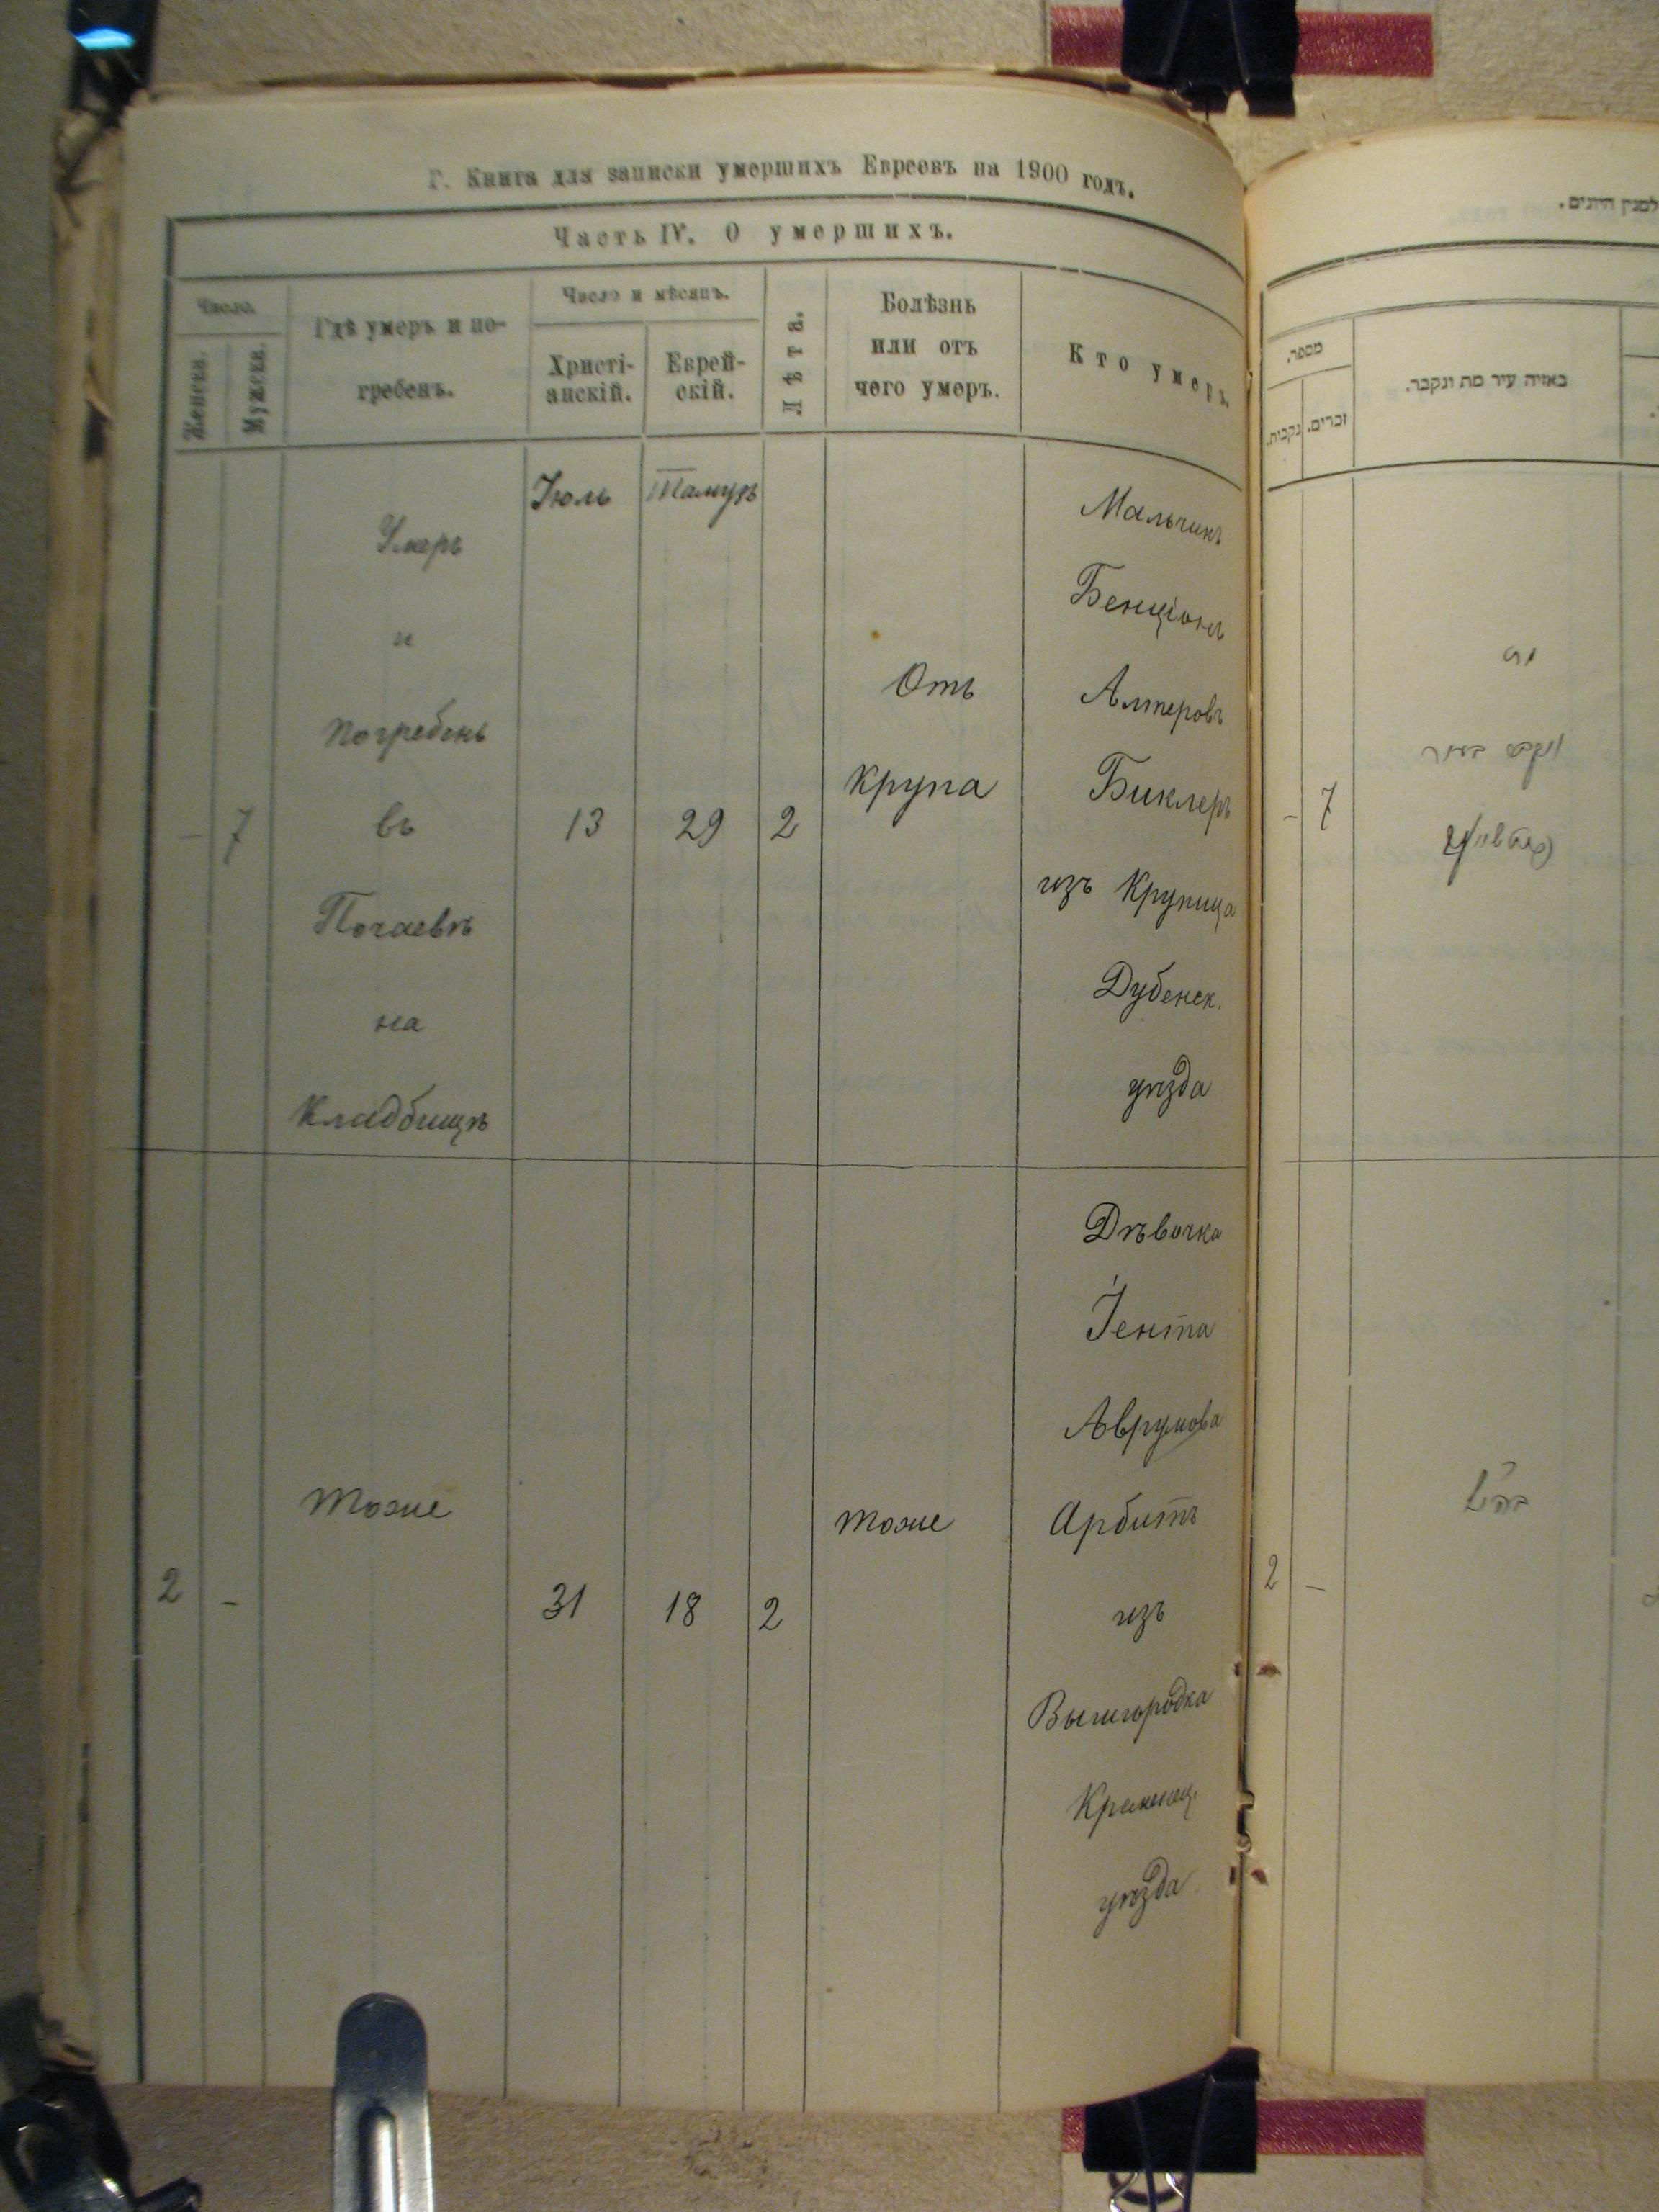 Г. Книга для записки умершихъ Евреевъ на 1900 годъ.
Часть IV. О умершихъ.
Число.
Женска.
Мужеска.
Гдѣ умеръ и по-
гребенъ.
Число и мѣсяцъ.
Христі-
анскій.
Еврей-
скій.
Лѣта.
Болѣзнь
или отъ
чего умеръ.
Кто умеръ.
Іюль
Тамузъ
–
7
Умеръ
и
погребенъ
въ
Почаевѣ
на
Кладбищѣ
13
29
2
Отъ
крупа
Мальчикъ
Бенціонъ
Алтеровъ
Биклеръ
изъ Крупица
Дубенск.
уѣзда
2
–
тоже
31
18
2
тоже
Дѣвочка
Іента
Аврумова
Арбитъ
изъ
Вышгородка
Кременец.
уѣзда
מספר.
נקבות.
זכרים.
באיזה עיר מת ונקבר.
–
7
מת
ונקבר בעיר
2
–